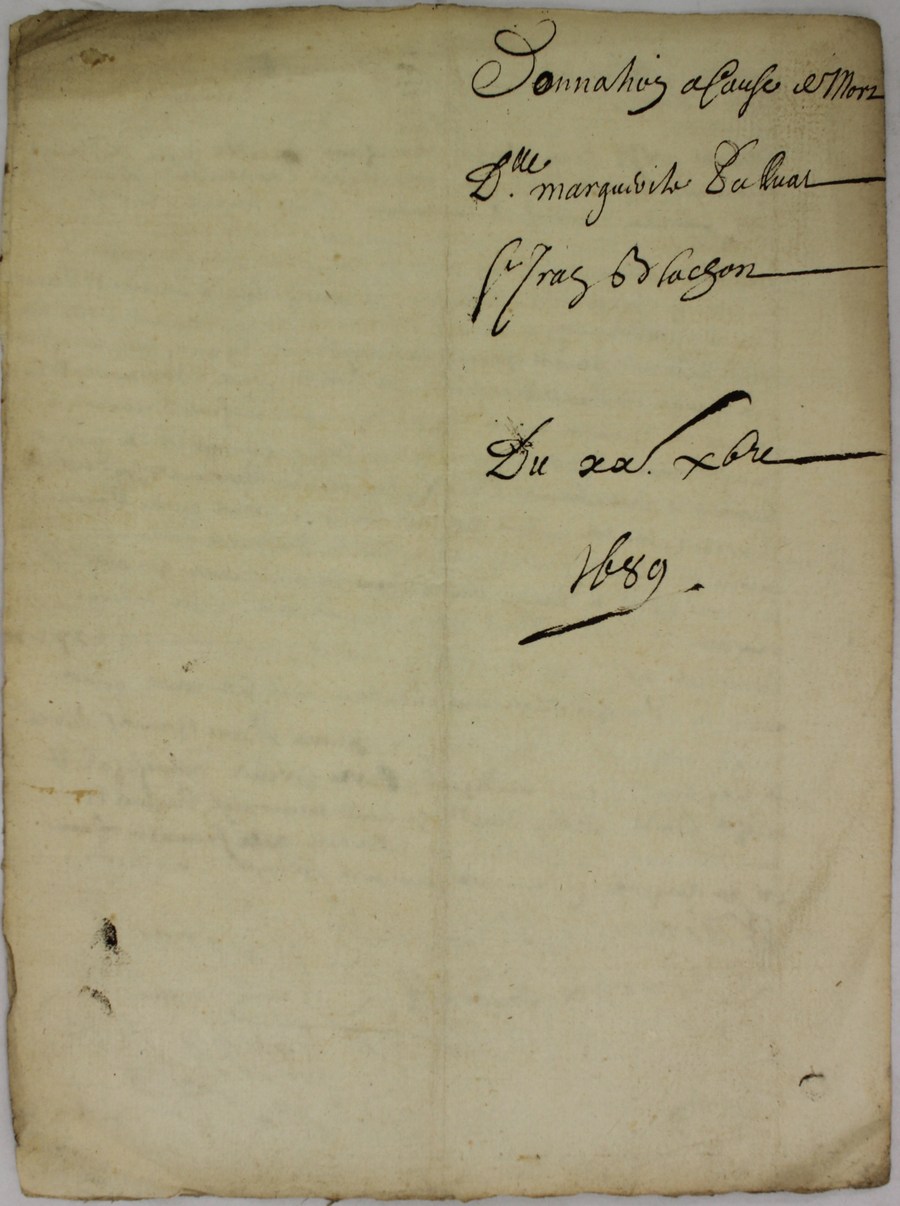 Donnation a Cause de Mort
D.lle marguerite
Sr Fraz Blachon
Du xx.e xbre
1689.